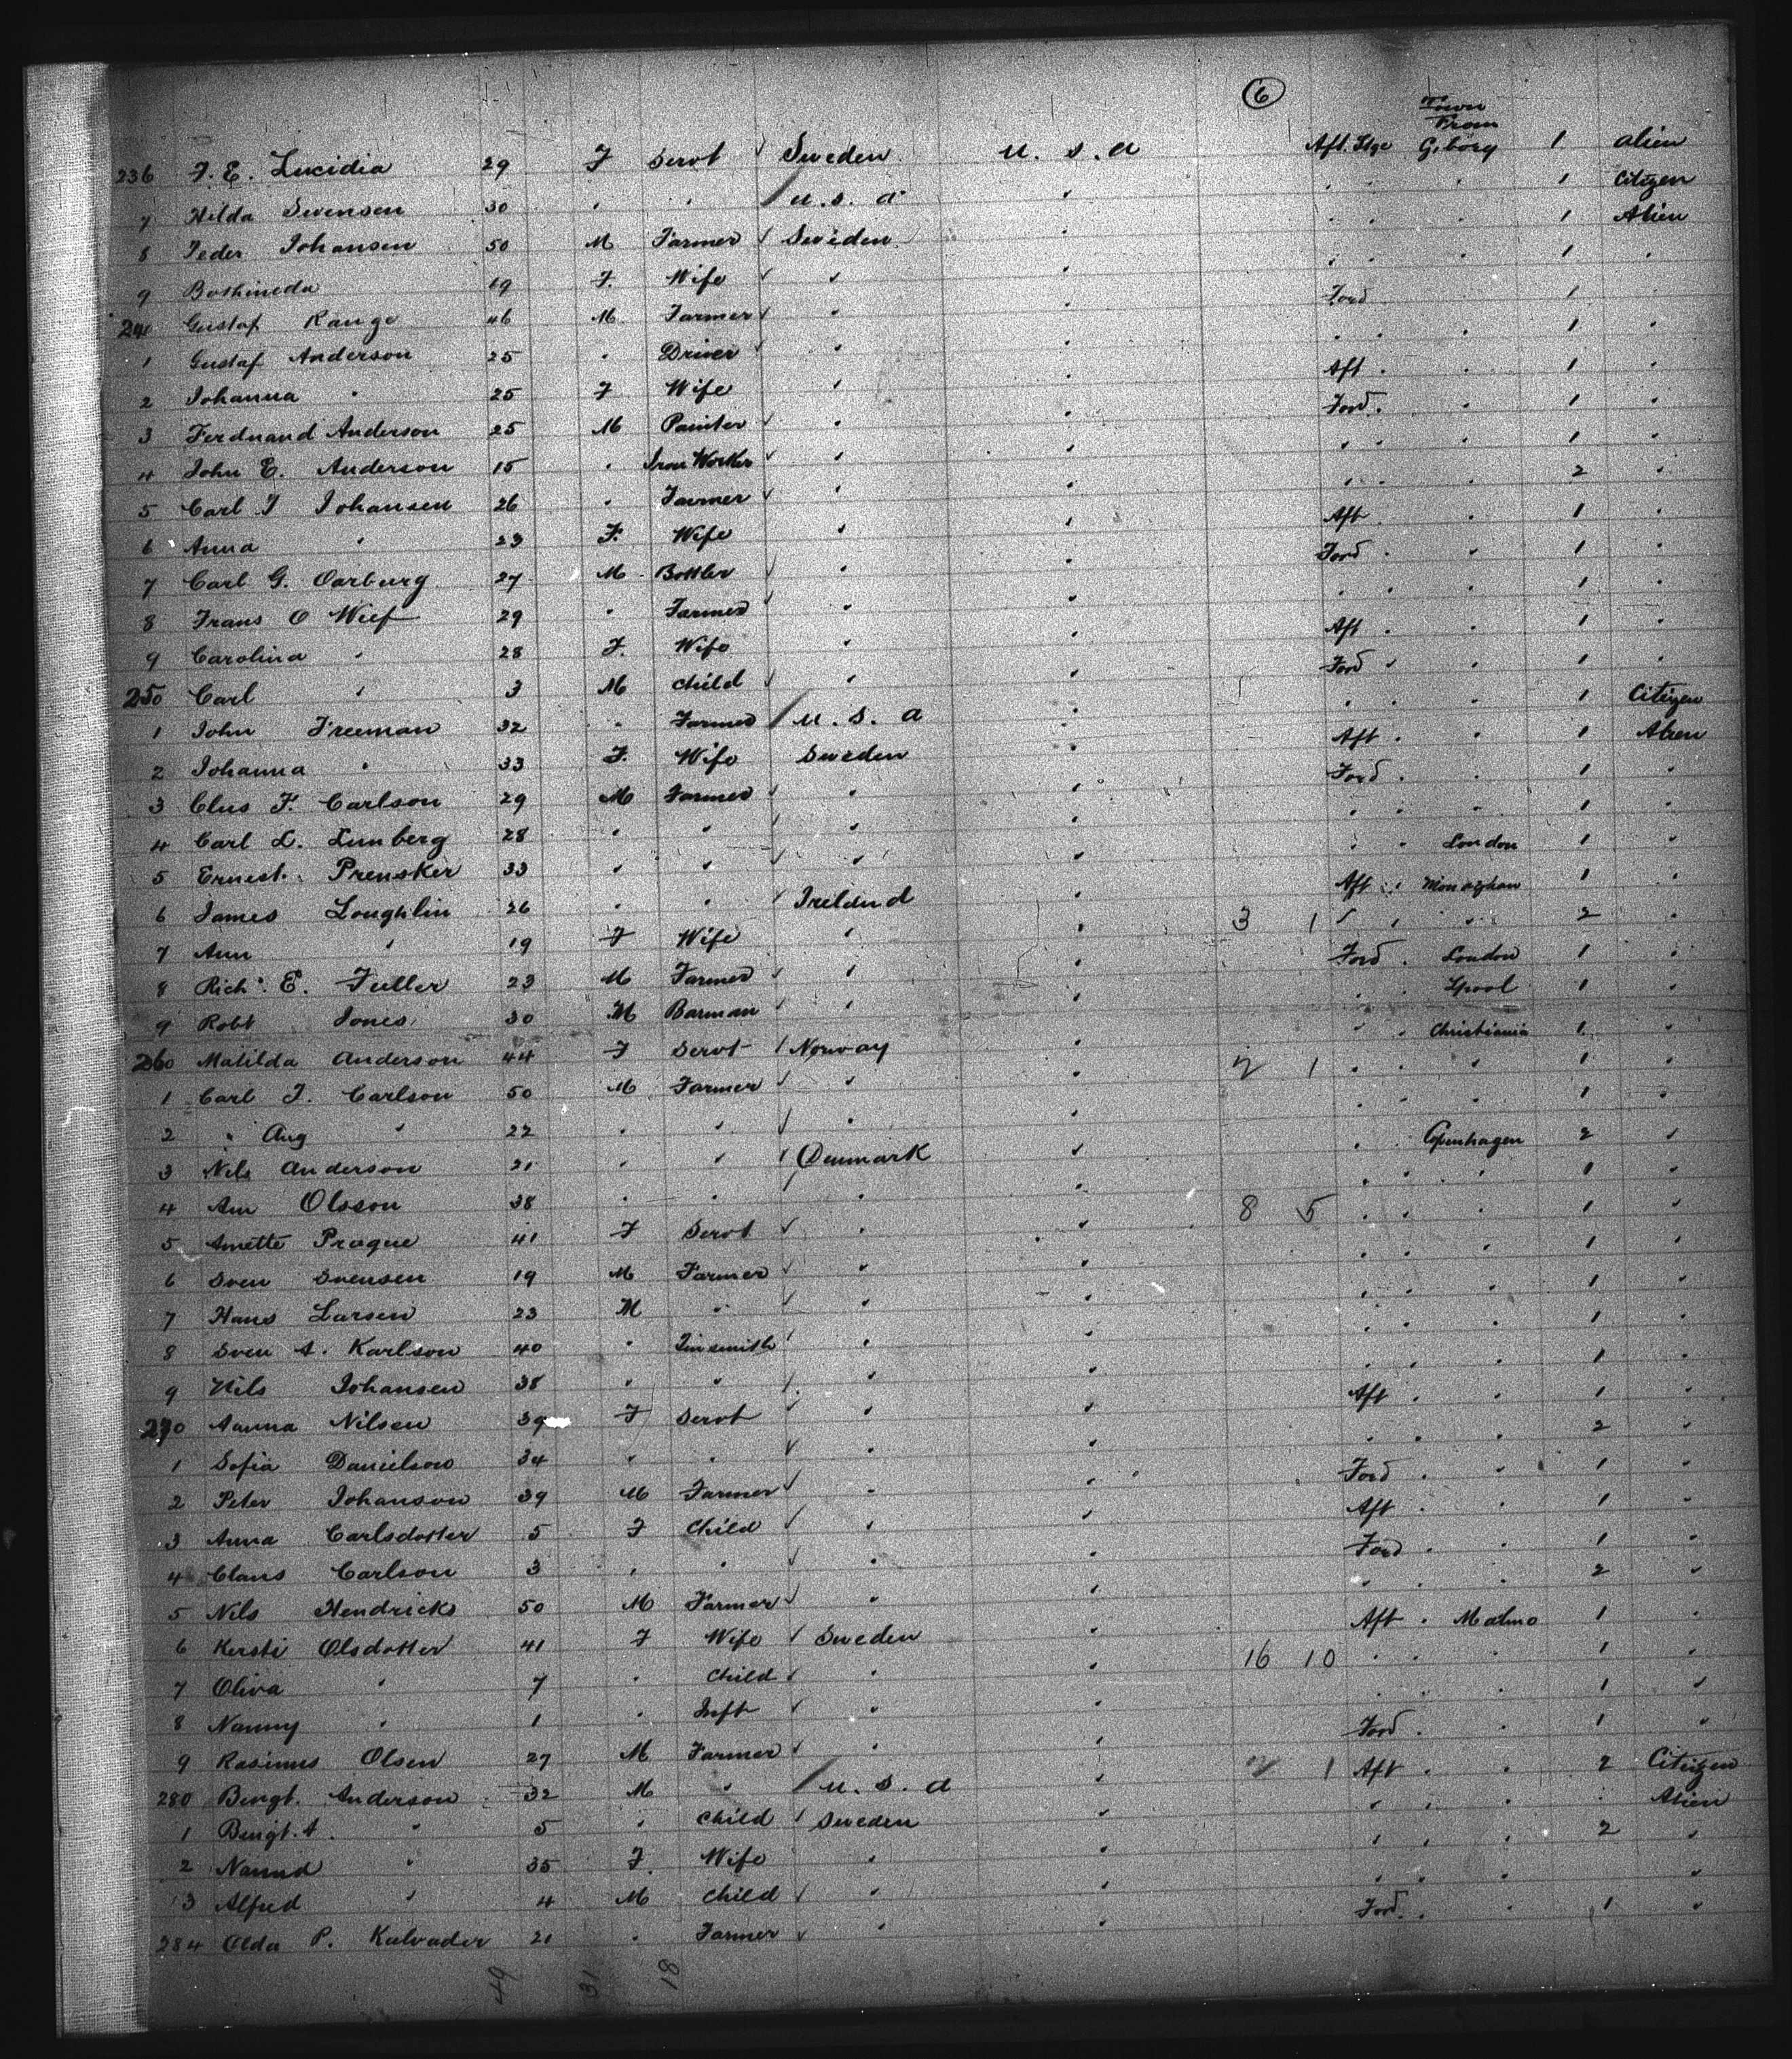 6
Town From
236 F. E. Lucidia 29 F Servt Sweden U. S. A Aft. Stge G.borg 1 Alien
7 Hilda Svensen 30 " " U. S. A " " " " 1 Citizen
8 Peder Johansen 50 M Farmer Sweden " " " " 1 Alien
9 19 F. Wife " " " " " 1 "
240 Gustaf Range 46 M Farmer " " Ford " 1 "
1 Gustaf Anderson 25 " Driver " " " " " 1 "
2 Johanna " 25 F Wife " " Aft " " 1 "
3 Ferdnand Anderson 25 M Painter " " Ford " 1 "
4 John E. Anderson 15 " Iron Worker " " " " " 1 "
5 Carl J Johansen 26 " Farmer " " " " " 2 "
6 Anna " 23 F. Wife " " Aft " 1 "
7 Carl G. Oarburg 27 M Bottler " " Ford " " 1 "
8 Frans O Wief 29 " Farmer " " " " " 1 "
9 Carolina " 28 F. Wife " " Aft " " 1 "
250 Carl " 3 M Child " " Ford " " 1 "
1 John Freeman 32 " Farmer U. S. A " " " " 1 Citizen
2 Johanna " 33 F. Wife Sweden " Aft " " 1 Alien
3 Clus F. Carlson 29 M Farmer " " Ford " " 1 "
4 Carl L. Lunberg 28 " " " " " " " 1 "
5 Ernest Prensker 33 " " " " " " London 1 "
6 James Loughlin 26 " " Ireland " Aft " Monaghan 1 "
7 Ann " 19 F Wife " " 3 1 " " " 2 "
8 Rich. E. Fuller 23 M Farmer " " Ford " London 1 "
9 Robt Jones 30 M Barman " " " " Lpool 1 "
260 Matilda Anderson 44 F Servt Norway " " " Christiania 1 "
1 Carl J. Carlson 50 M Farmer " " 2 1 " " " 1 "
2 " Aug " 22 " " " " " " " 1 "
3 Nils Anderson 21 " " Denmark " " " Copenhagen 2 "
4 Am Olsson 38 " " " " " " " 1 "
5 Amette Prague 41 F Servt " " 8 5 " " " 1 "
6 Sven Svensen 19 M Farmer " " " " " 1 "
7 Hans Larsen 23 M " " " " " " 1 "
8 Sven A. Karlson 40 " Tinsmith " " " " " 1 "
9 Nils Johansen 38 " " " " " " " 1 "
270 Aanna Nilsen 39 F Servt " " Aft " " 1 "
1 Sofia Danielson 34 " " " " " " " 2 "
2 Peter Johanson 39 M Farmer " " Ford " " 1 "
3 Anna Carlsdotter 5 F Child " " Aft " " 1 "
4 Claus Carlson 3 " " " " Ford " " 1 "
5 Nils Hendricks 50 M Farmer " " " " " 2 "
6 Kersti Olsdotter 41 F Wife Sweden " Aft " Malmo 1 "
7 Oliva " 7 " Child " " 16 10 " " " 1 "
8 Nanny " 1 " Inft " " " " " 1 "
9 Rasimus Olsen 27 M Farmer " " Ford " " 1 "
280 Bengt. Anderson 32 M " U. S. A " 2 1 Aft " " 2 Citizen
1 Bengt. A. " 5 " Child Sweden " " " " " Alien
2 Nannd " 35 F. Wife " " " " " 2 "
3 Alfred " 4 M Child " " " " " "
284 Olda P. Kalvader 21 " Farmer " " Ford " " 1 "
49 31 18